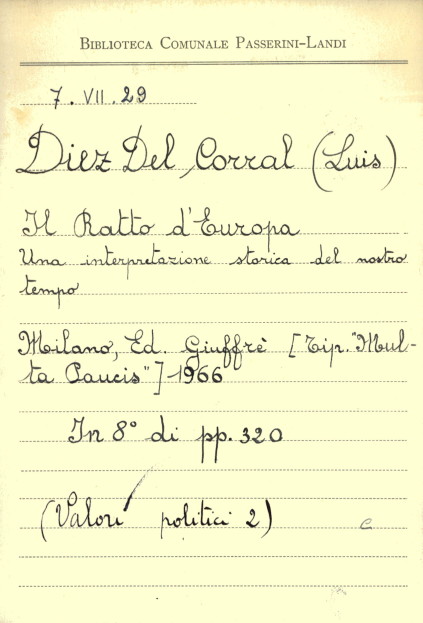 BIBLIOTECA COMUNALE PASSERINI-LANDI
7. VII. 29
Diez Del Corral (Luis)
Il Ratto d'Europa
Una interpretazione storica del nostro
tempo
Milano, Ed. Giuffrè [Tip. "Mul-
ta Paucis"] 1966
In 8° di pp. 320
(Valori politici 2)
c